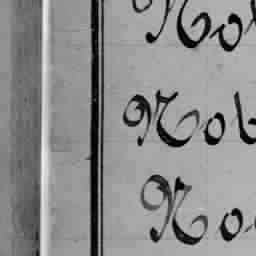 No
Nob
No